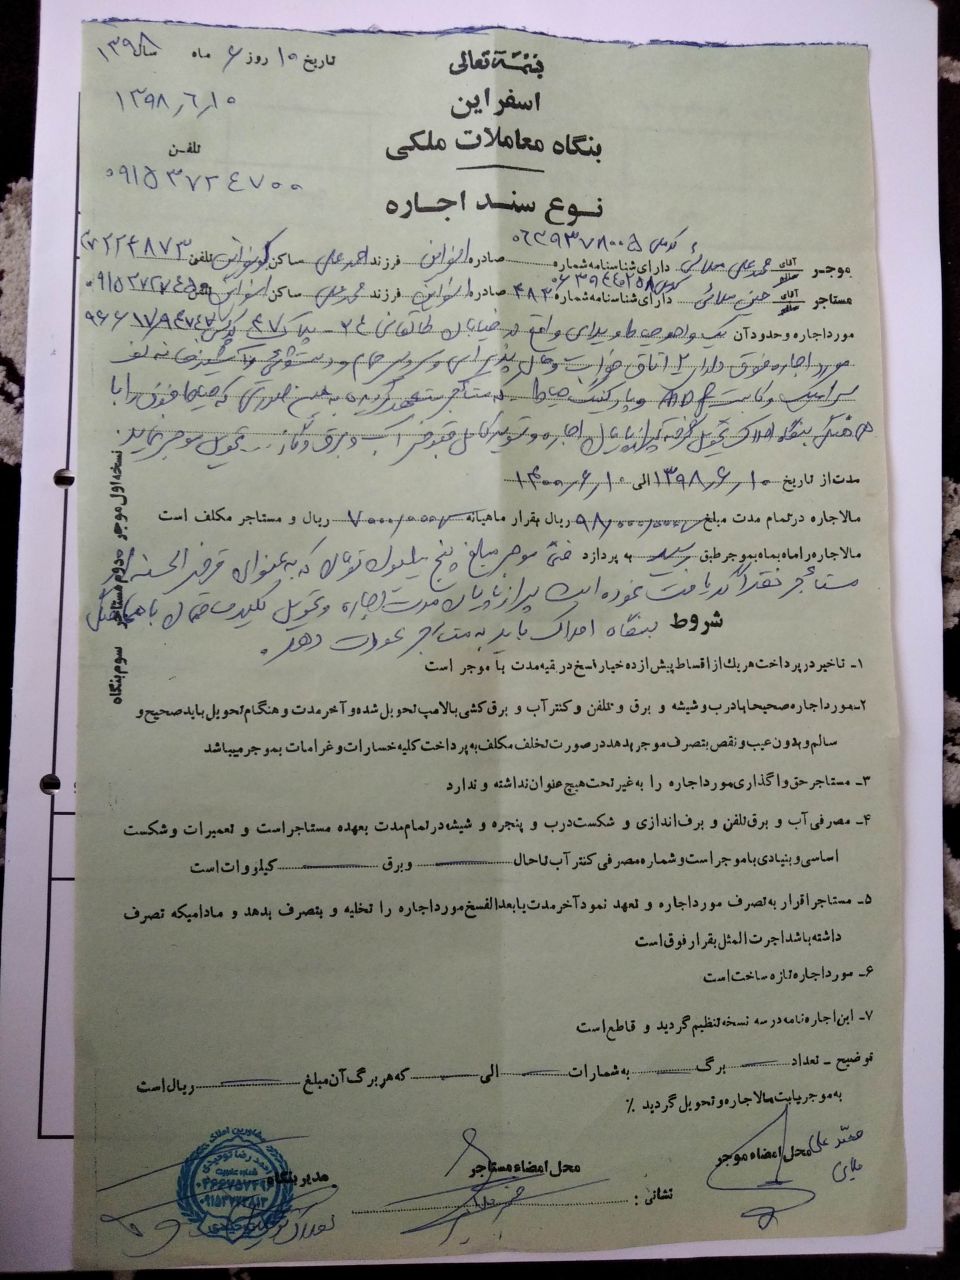 بسمه تعالی
تاریخ ۱۰ روز ۶ ماه سال ۱۳۹۸
اسفراین
۱۳۹۸/۶/۱۰
بنگاه معاملات ملکی
تلفن
۰۹۱۵۳۷۲۴۷۰۰
نوع سند اجاره
موجر آقای محمد علی ملائی دارای شناسنامه شماره کدملی صادره اسفراین فرزند احمد علی ساکن تلفن
مستاجر آقای ملائی دارای شناسنامه شماره ۴۸۳ صادره اسفراین فرزند محمد علی ساکن اسفراین تلفن
مورد اجاره و حدود آن واقع در خیابان طالقانی ۲۴ - پلاک ۴۷
مورد اجاره فوق دارای ۲ اتاق خواب و هال و پذیرایی و سرویس حمام و دستشویی
سرامیک و کابینت MDF و پارکینگ حیاط
هماهنگی بنگاه املاک تحویل گرفته پس از پایان اجاره و تسویه کامل قبوض آب و برق و گاز تحویل موجر نماید.
مدت از تاریخ ۱۳۹۸/۶/۱۰ الی ۱۴۰۰/۶/۱۰
مال‌اجاره در تمام مدت مبلغ ۹۸/۰۰۰/۰۰۰ ریال بقرار ماهیانه ۷۰۰۰/۰۰۰ ریال و مستاجر مکلف است
مال‌اجاره را ماه بماه بموجر طبق رسید به پردازد ضمناً موجر مبلغ پنج میلیون تومان که به عنوان قرض الحسنه از
مستاجر نقداً دریافت نموده است پس از پایان مدت اجاره و تحویل کلید ساختمان با هماهنگی
شروط بنگاه املاک باید به مستاجر عودت دهد.
۱ـ تاخیر در پرداخت هر یك از اقساط پیش از ده خیار فسخ در بقیه مدت با موجر است
۲ـ مورد اجاره صحیحا با درب و شیشه و برق و تلفن و کنتر آب و برق کشی بالامپ تحویل شده و آخر مدت و هنگام تحویل باید صحیح و
سالم و بدون عیب و نقص بتصرف موجر بدهد در صورت تخلف مکلف به پرداخت کلیه خسارات و غرامات بموجر میباشد
۳ـ مستاجر حق واگذاری مورد اجاره را به غیر تحت هیچ عنوان نداشته و ندارد
۴ـ مصرفی آب و برق تلفن و برف اندازی و شکست درب و پنجره و شیشه در تمام مدت بعهده مستاجر است و تعمیرات و شکست
اساسی و بنیادی با موجر است و شماره مصرفی کنتر آب تا حال و برق کیلو وات است
۵ـ مستاجر اقرار به تصرف مورد اجاره و تعهد نمود آخر مدت یا بعد الفسخ مورد اجاره را تخلیه و بتصرف بدهد و مادامیکه تصرف
داشته باشد اجرت المثل بقرار فوق است
۶ـ مورد اجاره تازه ساخت است
۷ـ این اجاره نامه در سه نسخه تنظیم گردید و قاطع است
توضیح ـ تعداد برگ به شمارات الی که هر برگ آن مبلغ ریال است
به موجر بابت مال‌اجاره و تحویل گردید ٪
محمد علی
ملایی
محل امضاء موجر
محل امضاء مستاجر
مدیر بنگاه
نشانی :
مشاورین املاک
احمد رضا توحیدی
شماره عضویت
نسخه اول موجر دوم مستاجر سوم بنگاه